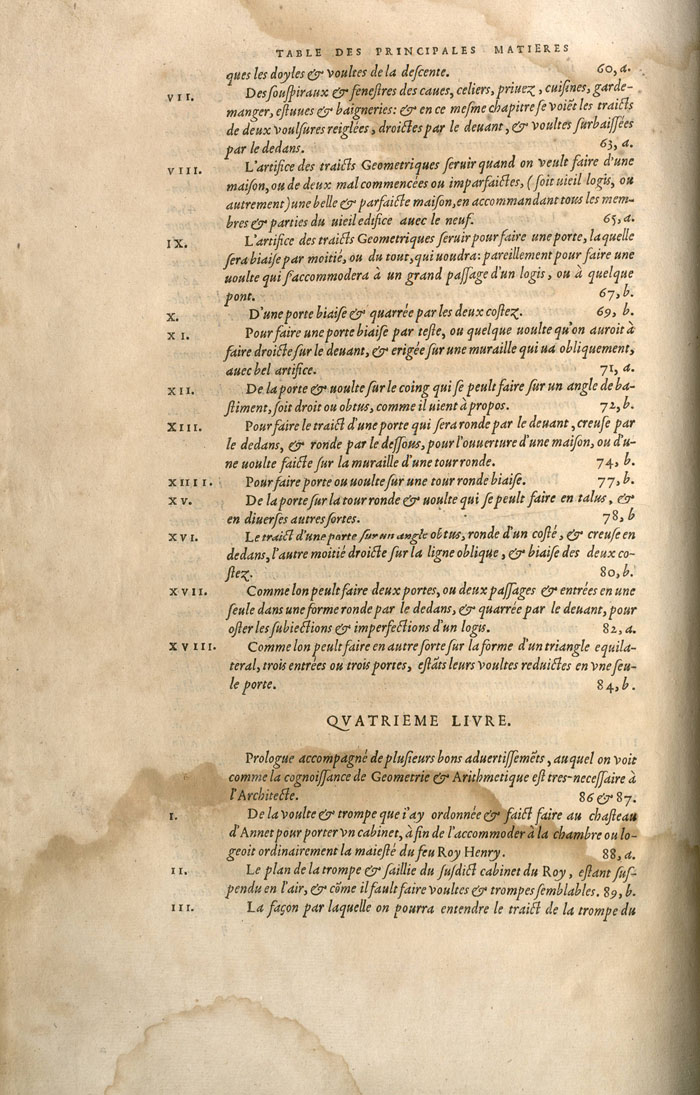 TABLE DES PRINCIPALES MATIERES
ques les doyles & voultes de la descente. 60, a.
VII. Des souspiraux & fenestres des caues, celiers, priuez, cuisines, garde-
manger, estuues & baigneries: & en ce mesme chapitre se voiēt les traicts
de deux voulsures reiglées, droictes par le deuant, & voultes surbaissées
par le dedans. 63, a.
VIII. L'artifice des traicts Geometriques seruir quand on veult faire d'une
maison, ou de deux mal commencées ou imparfaictes, (soit uieil logis, ou
autrement) une belle & parfaicte maison, en accommandant tous les mem-
bres & parties du uieil edifice auec le neuf. 65, a.
IX. L'artifice des traicts Geometriques seruir pour faire une porte, laquelle
sera biaise par moitié, ou du tout, qui uoudra: pareillement pour faire une
uoulte qui s'accommodera à un grand passage d'un logis, ou à quelque
pont. 67, b.
X. D'une porte biaise & quarrée par les deux costez. 69, b.
XI. Pour faire une porte biaise par teste, ou quelque uoulte qu'on auroit à
faire droicte sur le deuant, & erigée sur une muraille qui ua obliquement,
auec bel artifice. 71, a.
XII. De la porte & uoulte sur le coing qui se peult faire sur un angle de ba-
stiment, soit droit ou obtus, comme il uient à propos. 72, b.
XIII. Pour faire le traict d'une porte qui sera ronde par le deuant, creuse par
le dedans, & ronde par le dessous, pour l'ouuerture d'une maison, ou d'u-
ne uoulte faicte sur la muraille d'une tour ronde. 74, b.
XIIII. Pour faire porte ou uoulte sur une tour ronde biaise. 77, b.
XV. De la porte sur la tour ronde & uoulte qui se peult faire en talus, &
en diuerses autres sortes. 78, b
XVI. Le traict d'une porte sur un angle obtus, ronde d'un costé, & creuse en
dedans, l'autre moitié droicte sur la ligne oblique, & biaise des deux co-
stez. 80, b.
XVII. Comme lon peult faire deux portes, ou deux passages & entrées en une
seule dans une forme ronde par le dedans, & quarrée par le deuant, pour
oster les subiections & imperfections d'un logis. 82, a.
XVIII. Comme lon peult faire en autre sorte sur la forme d'un triangle equila-
teral, trois entrées ou trois portes, estāts leurs voultes reduictes en vne seu-
le porte. 84, b.
QVATRIEME LIVRE.
Prologue accompagné de plusieurs bons aduertissemēts, auquel on voit
comme la cognoissance de Geometrie & Arithmetique est tres-necessaire à
l'Architecte. 86 & 87.
I. De la voulte & trompe que i'ay ordonnée & faict faire au chasteau
d'Annet pour porter vn cabinet, à fin de l'accommoder à la chambre ou lo-
geoit ordinairement la maiesté du feu Roy Henry. 88, a.
II. Le plan de la trompe & saillie du susdict cabinet du Roy, estant sus-
pendu en l'air, & cōme il fault faire voultes & trompes semblables. 89, b.
III. La façon par laquelle on pourra entendre le traict de la trompe du